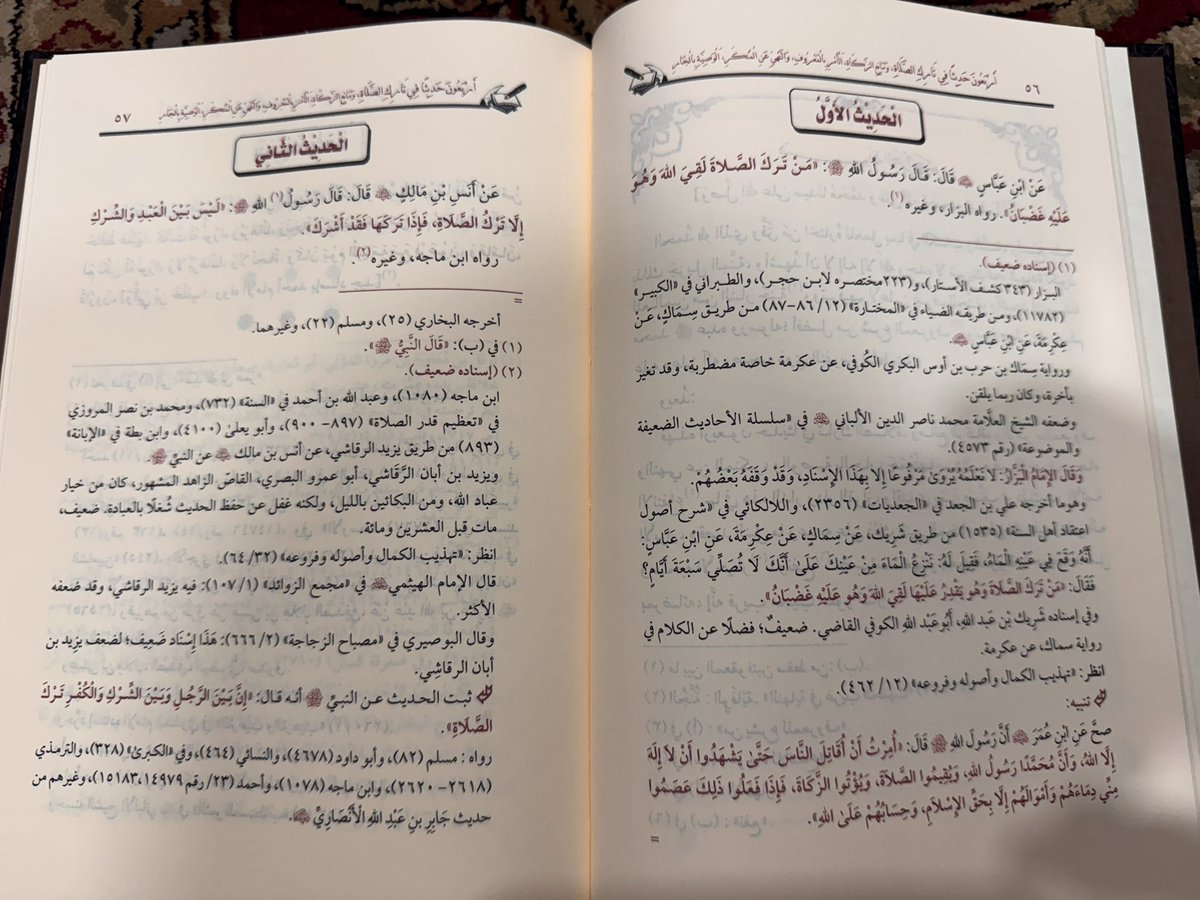 أَرْبَعُونَ حَدِيثًا فِي تَارِكِ الصَّلَاةِ، وَمَانِعِ الزَّكَاةِ، الْأَمْرِ بِالْمَعْرُوفِ، وَالنَّهْيِ عَنِ الْمُنْكَرِ، الْوَصِيَّةِ بِالْجَارِ
٥٦
الْحَدِيثُ الأَوَّلُ
عَنْ ابْنِ عَبَّاسٍ ﷺ قَالَ: قَالَ رَسُولُ اللهِ ﷺ: «مَنْ تَرَكَ الصَّلاةَ لَقِيَ اللهَ وَهُوَ
عَلَيْهِ غَضْبَانُ». رواه البزار، وغيره(١).
(١) (إسناده ضعيف).
البزار (٣٤٣ كشف الأستار)، و(٢٢٣ مختصره لابن حجر)، والطبراني في «الكبير»
(١١٧٨٢)، ومن طريقه الضياء في «المختارة» (١٢/ ٨٦-٨٧) من طريق سِمَاكٍ، عَنْ
عِكْرِمَةَ، عَنِ ابْنِ عَبَّاسٍ.
ورواية سِمَاك بن حرب بن أوس البكري الكُوفي، عن عكرمة خاصة مضطربة، وقد تغير
بأخرة، وكان ربما يلقن.
وضعفه الشيخ العلَّامة محمد ناصر الدين الألباني في «سلسلة الأحاديث الضعيفة
والموضوعة» (رقم ٤٥٧٣).
وَقَالَ الإِمَامُ البَزَّارُ: لا نَعْلَمُهُ يُرْوَىٰ مَرْفُوعًا إِلا بِهَذَا الإِسْنَادِ، وَقَدْ وَقَفَهُ بَعْضُهُمْ.
وهوما أخرجه علي بن الجعد في «الجعديات» (٢٣٥٦)، واللالكائي في «شرح أصول
اعتقاد أهل السنة» (١٥٣٥) من طريق شَرِيك، عَنْ سِمَاكٍ، عَنْ عِكْرِمَةَ، عَنِ ابْنِ عَبَّاسٍ:
أَنَّهُ وَقَعَ فِي عَيْنِهِ الْمَاءُ، فَقِيلَ لَهُ: نَنْزِعُ الْمَاءَ مِنْ عَيْنِكَ عَلَىٰ أَنَّكَ لَا تُصَلِّي سَبْعَةَ أَيَّامٍ؟
فَقَالَ: «مَنْ تَرَكَ الصَّلاةَ وَهُو يَقْدِرُ عَلَيْهَا لَقِيَ اللهَ وَهُو عَلَيْهِ غَضْبَانُ».
وفي إسناده شَرِيك بن عبد الله، أَبُوعَبْد اللهِ الكوفي القاضي. ضعيفٌ؛ فضلًا عن الكلام في
رواية سماك، عن عكرمة.
انظر: «تهذيب الكمال وأصوله وفروعه» (١٢/ ٤٦٢).
تنبيه:
صحَّ عَنِ ابْنِ عُمَرَ أَنَّ رَسُولَ اللهِ ﷺ قَالَ: «أُمِرْتُ أَنْ أُقَاتِلَ النَّاسَ حَتَّىٰ يَشْهَدُوا أَنْ لاَ إِلَهَ
إِلَّا اللهُ، وَأَنَّ مُحَمَّدًا رَسُولُ اللهِ، وَيُقِيمُوا الصَّلاَةَ، وَيُؤْتُوا الزَّكَاةَ، فَإِذَا فَعَلُوا ذَلِكَ عَصَمُوا
مِنِّي دِمَاءَهُمْ وَأَمْوَالَهُمْ إِلَّا بِحَقِّ الإِسْلَامِ، وَحِسَابُهُمْ عَلَىٰ اللهِ».
=
أَرْبَعُونَ حَدِيثًا فِي تَارِكِ الصَّلَاةِ، وَمَانِعِ الزَّكَاةِ، الْأَمْرِ بِالْمَعْرُوفِ، وَالنَّهْيِ عَنِ الْمُنْكَرِ، الْوَصِيَّةِ بِالْجَارِ
٥٧
الْحَدِيْثُ الثَّانِي
عَنْ أَنَسِ بْنِ مَالِكٍ قَالَ: قَالَ رَسُولُ(١) اللهِ ﷺ: «لَيْسَ بَيْنَ الْعَبْدِ وَالشِّرْكِ
إِلَّا تَرْكُ الصَّلَاةِ، فَإِذَا تَرَكَهَا فَقَدْ أَشْرَكَ».
رواه ابن ماجه، وغيره(٢).
=
أخرجه البخاري (٢٥)، ومسلم (٢٢)، وغيرهما.
(١) في (ب): «قَالَ النَّبِيُّ ﷺ».
(٢) (إسناده ضعيف).
ابن ماجه (١٠٨٠)، وعبد الله بن أحمد في «السنة» (٧٣٢)، ومحمد بن نصر المروزي
في «تعظيم قدر الصلاة» (٨٩٧- ٩٠٠)، وأبو يعلىٰ (٤١٠٠)، وابن بطة في «الإبانة»
(٨٩٣) من طريق يزيد الرقاشي، عن أنس بن مالك عن النبيِّ ﷺ.
ويزيد بن أبان الرَّقاشي، أبو عمرو البصري، القاصّ الزاهد المشهور، كان من خيار
عباد الله، ومن البكائين بالليل، ولكنه غفل عن حفظ الحديث شُغلًا بالعبادة. ضعيف،
مات قبل العشرين ومائة.
انظر: «تهذيب الكمال وأصوله وفروعه» (٣٢/ ٦٤).
قال الإمام الهيثمي في «مجمع الزوائد» (١/ ١٠٧): فيه يزيد الرقاشي، وقد ضعفه
الأكثر.
وقال البوصيري في «مصباح الزجاجة» (٢/ ٦٦٦): هَذَا إِسْنَاد ضَعِيف؛ لضعف يزيد بن
أبان الرقاشِي.
ثبت الحديث عن النبيِّ ﷺ أنه قال: «إِنَّ بَيْنَ الرَّجُلِ وَبَيْنَ الشِّرْكِ وَالْكُفْرِ تَرْكَ
الصَّلَاةِ».
رواه : مسلم (٨٢)، وأبو داود (٤٦٧٨)، والنسائي (٤٦٤)، وفي «الكبرىٰ» (٣٢٨)، والترمذي
(٢٦١٨- ٢٦٢٠)، وابن ماجه (١٠٧٨)، وأحمد (٢٣/ رقم ١٤٩٧٩، ١٥١٨٣)، وغيرهم من
حديث جَابِرِ بنِ عَبْدِ اللهِ الْأَنْصَارِيِّ.